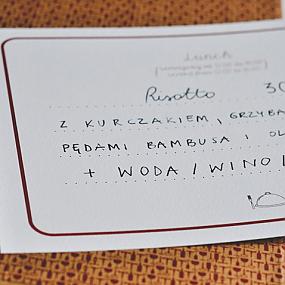 Lunch
Risotto 30
Z KURCZAKIEM, GRZYBA
PĘDAMI BAMBUSA I OL
+ WODA / WINO /